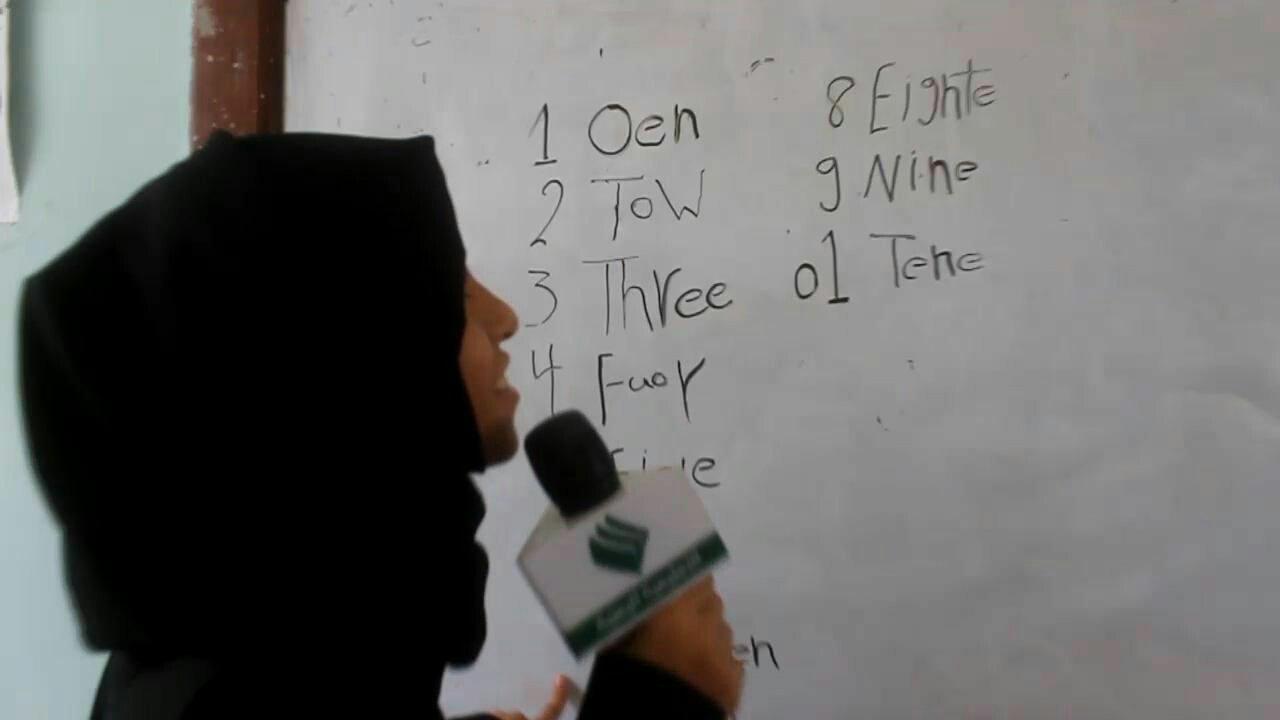 1 Oen
2 Tow
3 Three
4 Fuor
8 Eighte
9 Nine
01 Tene